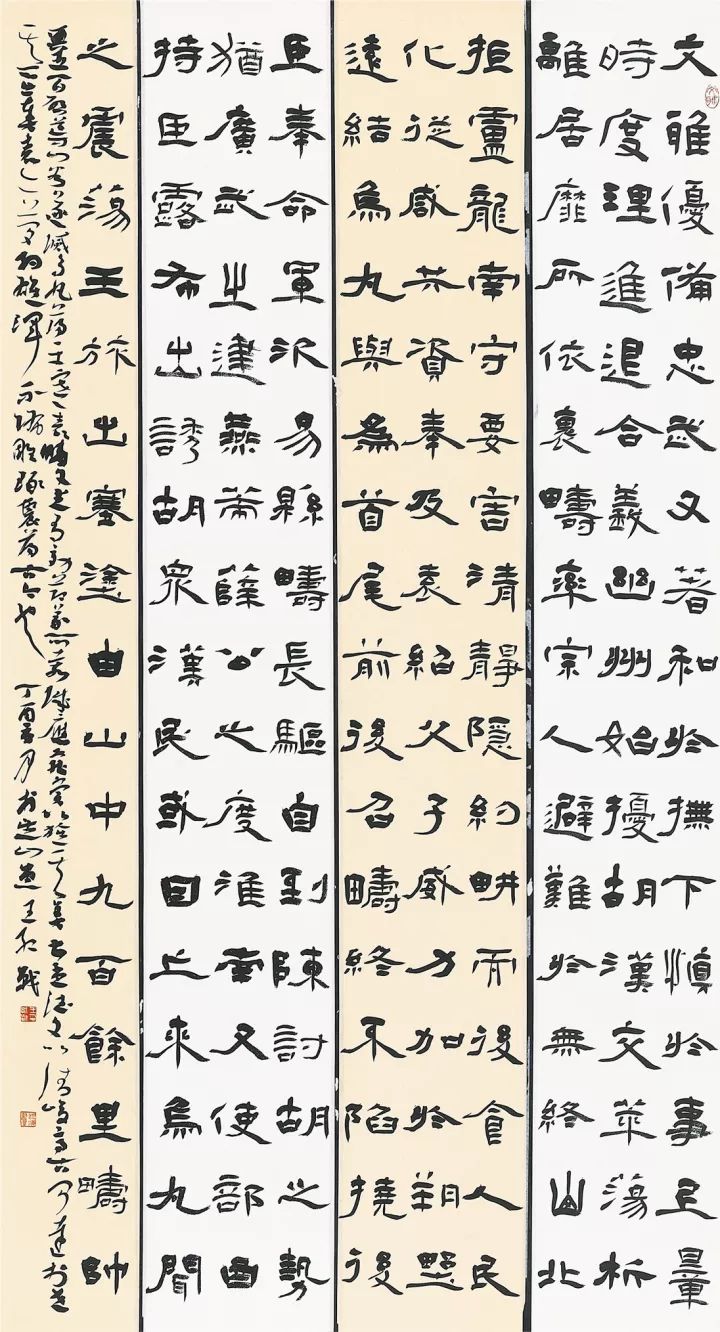 文雅優備忠武又著和於撫下慎於事上量
時度理進退合義幽州始擾胡漢交萃蕩析
離居靡所依褱疇率宗人避難於無終山北
拒盧龍南守要害清靜隱約耕而後食人民
化從咸共資奉及袁紹父子威力加於朔野
遠結烏丸與為首尾前後召疇終不陷撓後
臣奉命軍次易縣疇長驅自到陳討胡之勢
猶廣武之建燕策薛公之度淮南又使部曲
持臣露布出誘胡眾漢民或因亡來烏丸聞
之震蕩王旅出塞塗由山中九百餘里疇帥
兵五百啟導山谷遂滅烏丸蕩平塞表疇文武有效節義可嘉誠應寵賞以旌其美
丁酉